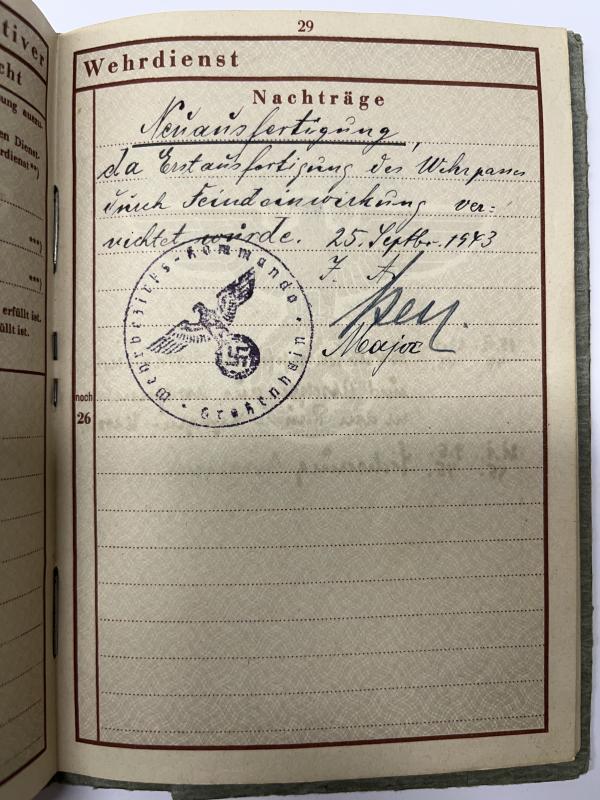 tiver
cht
29
Wehrdienst
Nachträge
Neuausfertigung,
da Erstausfertigung des Wehrpasses
durch Feindeinwirkung ver-
nichtet wurde. 25. Septbr. 1943
J. A.
Major
Wehrbezirks-Kommando
Großenhain
noch
26
en Dienst-
rdienst**)
***)
***)
erfüllt ist.
üllt ist.